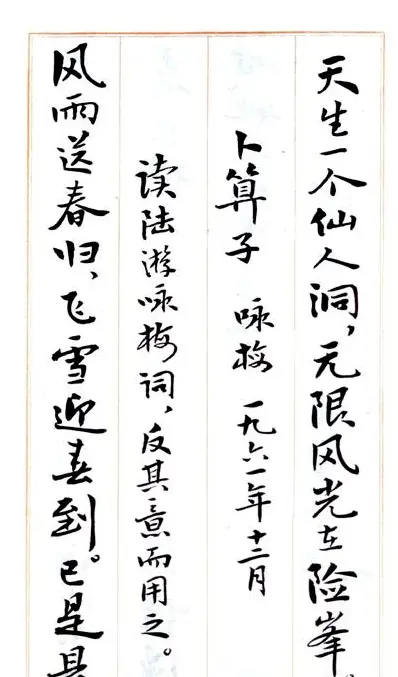 天生一个仙人洞，无限风光在险峰。
卜算子 咏梅 一九六一年十二月
读陆游咏梅词，反其意而用之。
风雨送春归，飞雪迎春到。已是